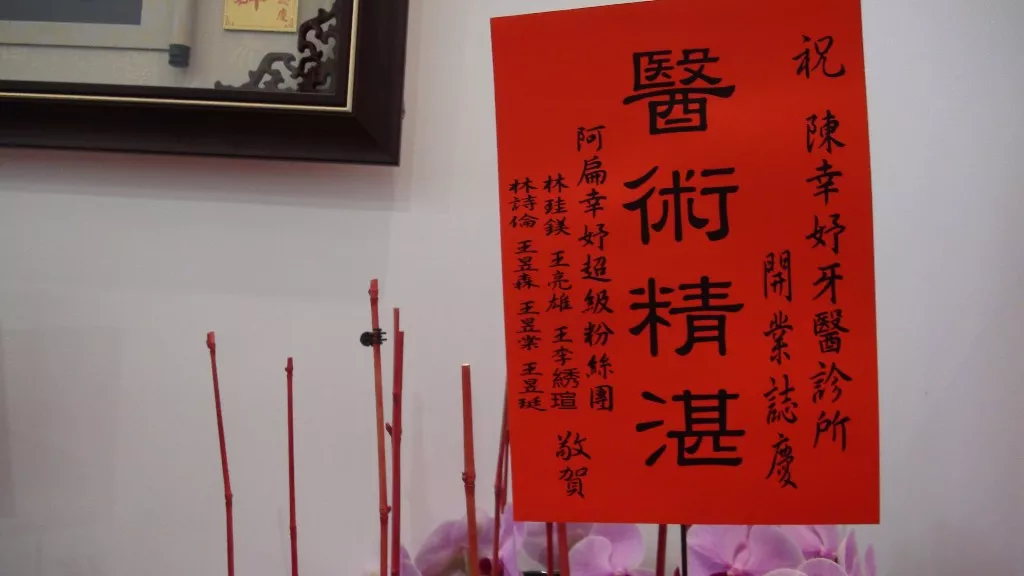 祝
陳幸妤牙醫診所
開業誌慶
醫術精湛
阿扁幸妤超級粉絲團
林珪鎂 王亮雄 王李綉瑄
林詩倫 王昱森 王昱棠 王昱珽
敬賀